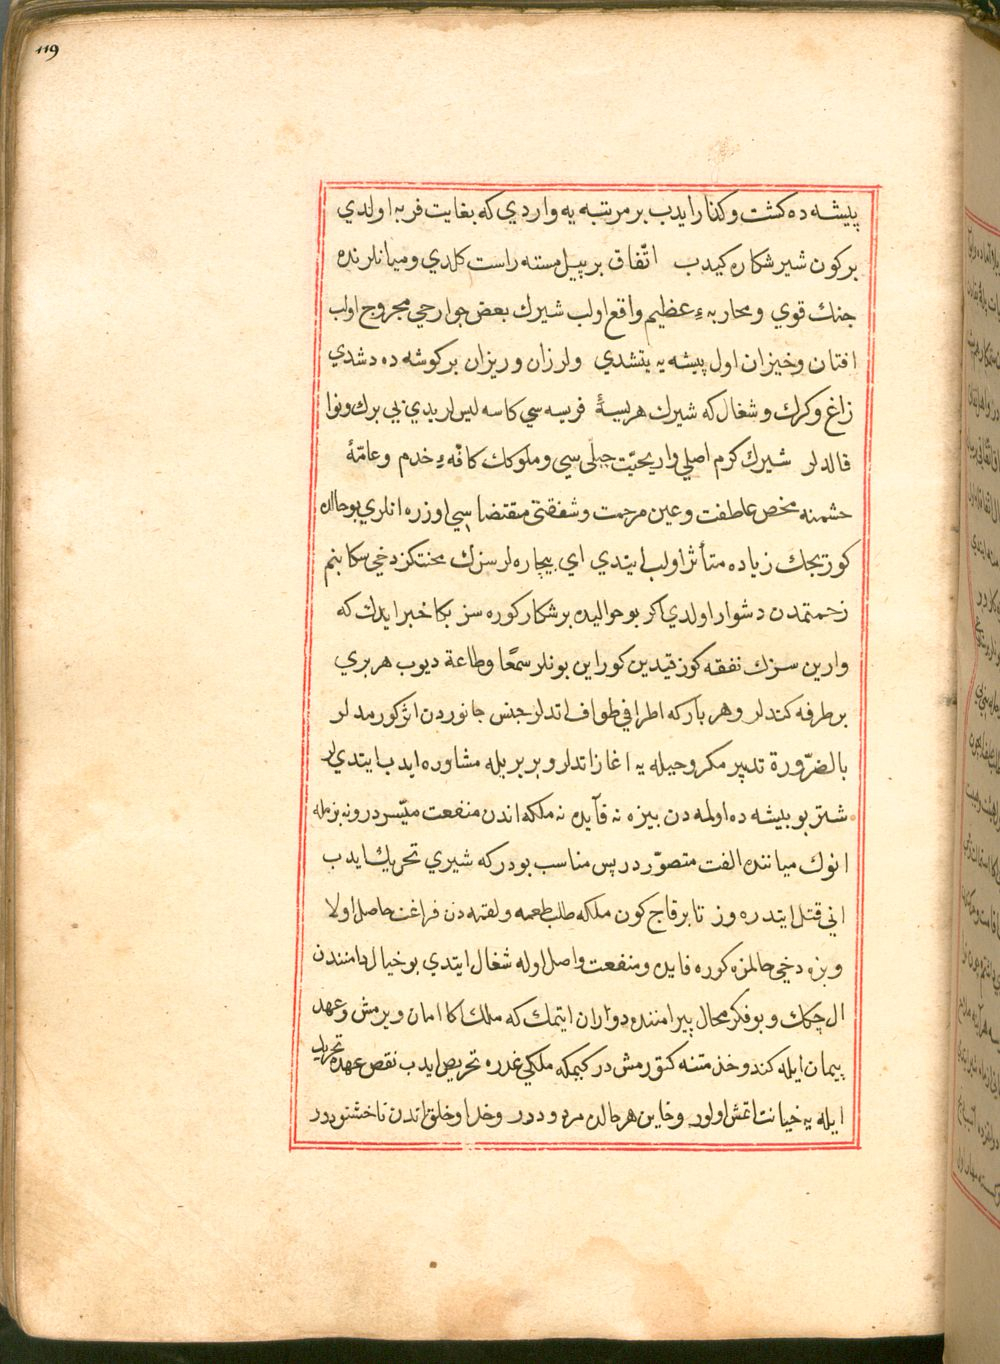 119
پیشه ده کشت و کذار ایدب بر مرتبه یه واردي که بغایت فربه اولدي
بر کون شیر شکاره کیدب اتّفاق بر پیل مسته راست کلدي و میانلرنده
جنك قوي و محاربهء عظیم واقع اولب شیرك بعض جوارحي مجروح اولب
افتان و خیزان اول پیشه یه یتشدي و لرزان و ریزان بر کوشه ده دشدي
زاغ و کرك و شغال که شیرك هریسهٔ فریسه سي کاسه لیسلریدي بي برك و نوا
قالدلر شیرك کرم اصلي و اریحیّت جبلي سي و ملوکك کافّهء خدم و عامّهٔ
حشمنه محض عاطفت و عین مرحمت و شفقتي مقتضا سي اوزره انلري بو حالده
کوریجك زیاده متأثر اولب ایتدي اي بیچاره لر سزك محنتکز دخي بکا بنم
زحمتمدن دشوار اولدي اکر بو حوالیده بر شکار کوره سز بکا خبر ایدك که
وارین سزك نفقه کوز قیدین کوراین بونلر سمعًا و طاعة دیوب هر بري
بر طرفه کتدلر و هر بار که اطرافي طواف اتدلر جنس جانوردن اثر کورمدلر
بالضّرورة تدبیر مکر و حیله یه اغاز اتدلر و بر بریله مشاوره ایدب ایتدیلر
شتر بو بیشه ده اولمه دن بیزه نه فآیده نه ملکه اندن منفعت میّسر در و نه بزمله
انوك میاننده الفت متصوّر در پس مناسب بودر که شیري تحریك ایدب
اني قتل ایتدره وز تا بر قاج کون ملکه طلب طعمه و لقمه دن فراغت حاصل اولا
و بزه دخي حالمزه کوره فایده و منفعت واصل اوله شغال ایتدي بو خیال دامنندن
ال چکك و بو فکر محال پیرامننده دوران ایتمك که ملك اکا امان ویرمش و عهد
پیمان ایله کندو خذمتنه کتورمش در کیمکه ملکي غدره تحریص ایدب نقض عهده تحرید
ایله یه خیانت اتمش اولور و خاین هر حالده مردود در و خدا و خلق اندن ناخشنوددر